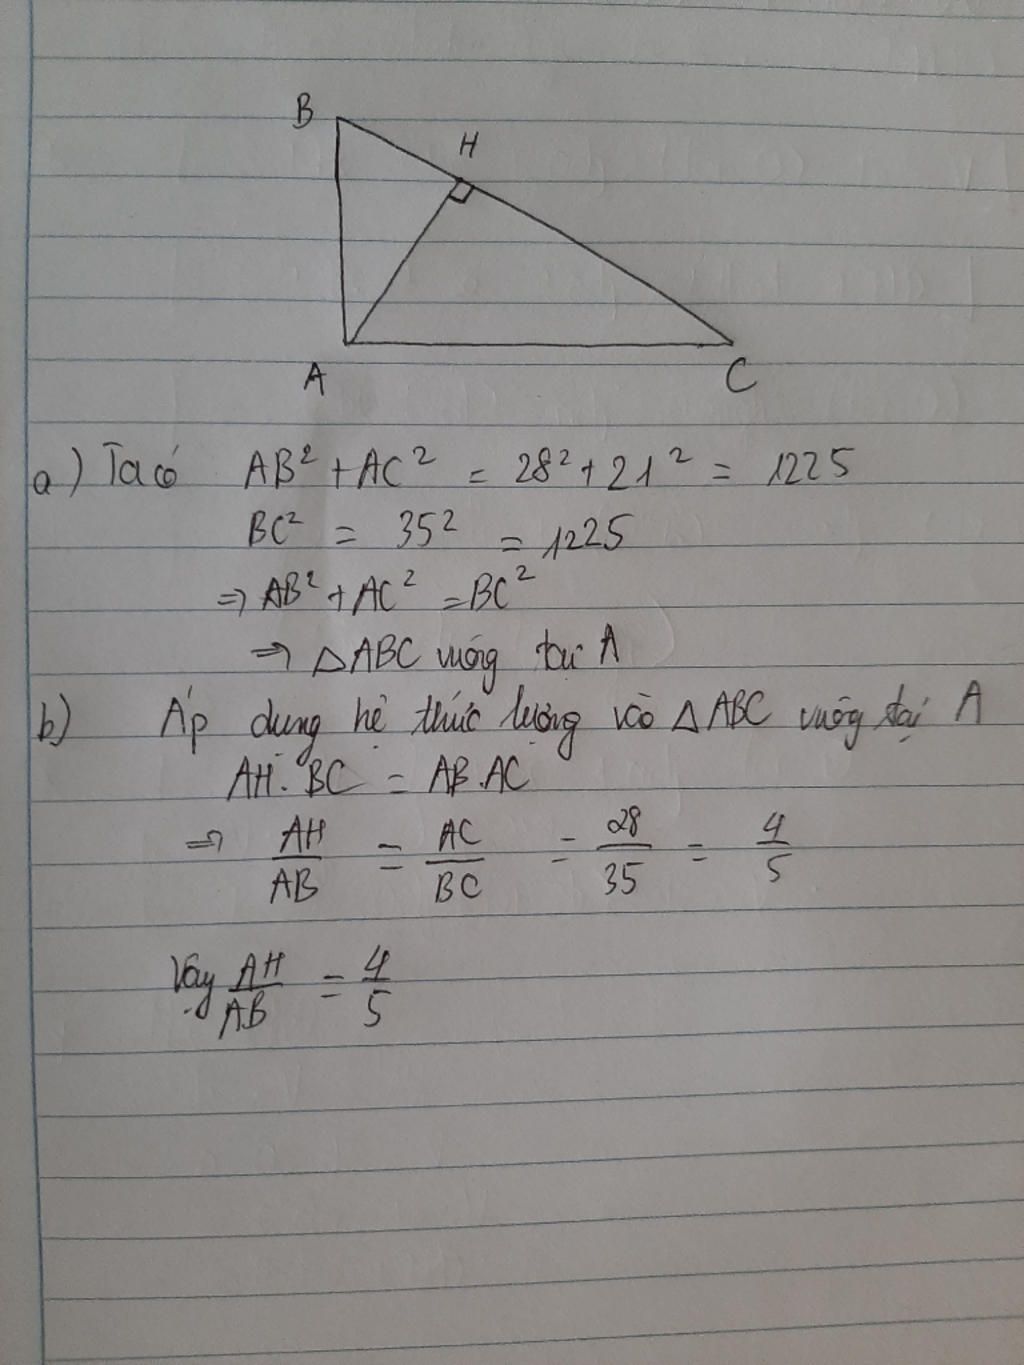 B
H
A
C
a) Ta có AB² + AC² = 28² + 21² = 1225
BC² = 35² = 1225
⇒ AB² + AC² = BC²
⇒ △ABC vuông tại A
b) Áp dụng hệ thức lượng vào △ABC vuông tại A
AH. BC = AB.AC
⇒ AH/AB = AC/BC = 28/35 = 4/5
Vậy AH/AB = 4/5